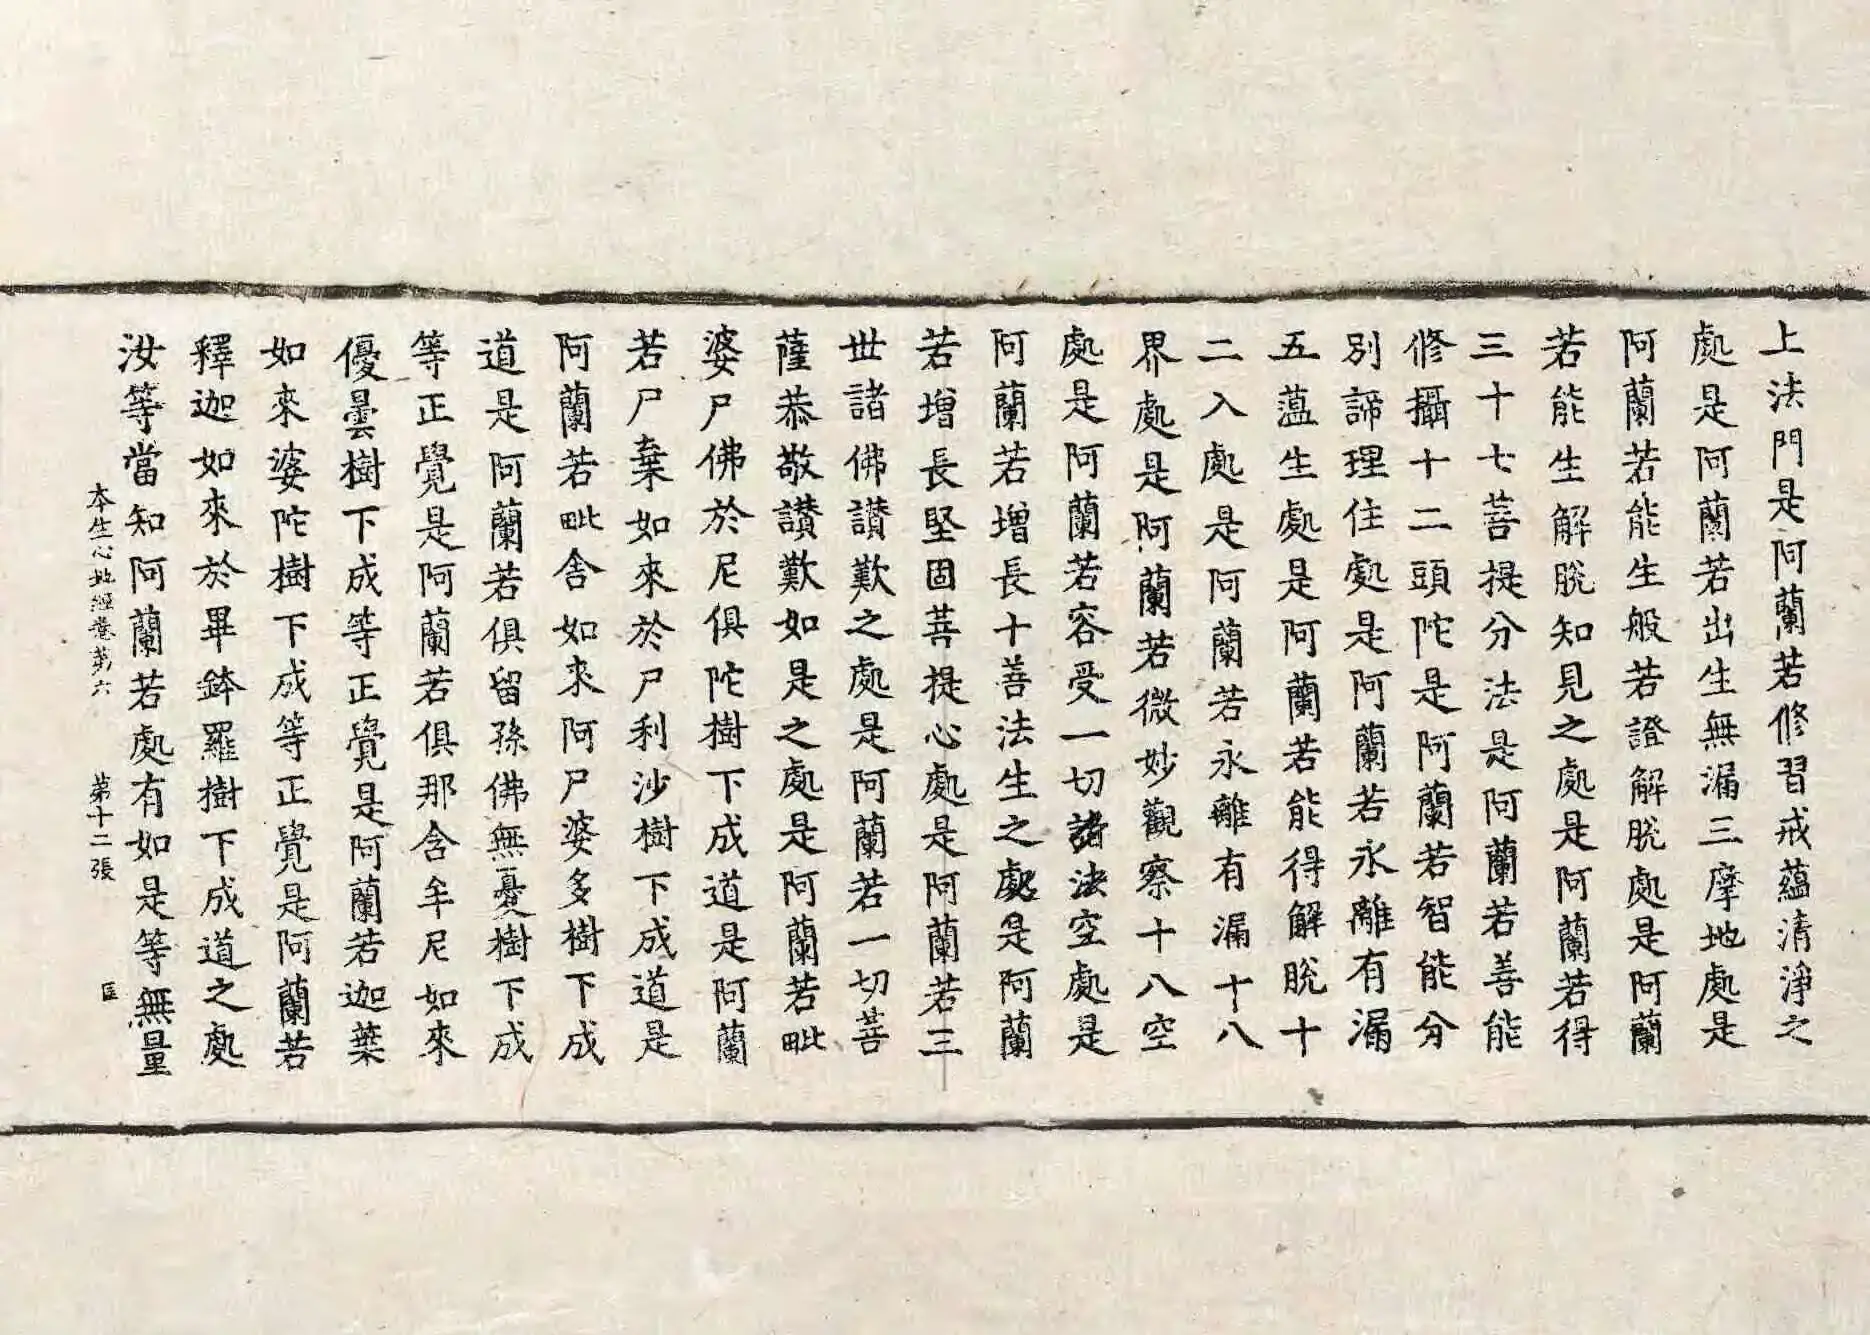 上法門是阿蘭若修習戒蘊清淨之
處是阿蘭若出生無漏三摩地處是
阿蘭若能生般若證解脫處是阿蘭
若能生解脫知見之處是阿蘭若得
三十七菩提分法是阿蘭若善能
修攝十二頭陀是阿蘭若智能分
別諦理住處是阿蘭若永離有漏
五薀生處是阿蘭若能得解脫十
二入處是阿蘭若永離有漏十八
界處是阿蘭若微妙觀察十八空
處是阿蘭若容受一切諸法空處是
阿蘭若增長十善法生之處是阿蘭
若增長堅固菩提心處是阿蘭若三
世諸佛讃歎之處是阿蘭若一切菩
薩恭敬讃歎如是之處是阿蘭若毗
婆尸佛於尼俱陀樹下成道是阿蘭
若尸棄如來於尸利沙樹下成道是
阿蘭若毗舍如來阿尸婆多樹下成
道是阿蘭若俱留孫佛無憂樹下成
等正覺是阿蘭若俱那含牟尼如來
優曇樹下成等正覺是阿蘭若迦葉
如來婆陀樹下成等正覺是阿蘭若
釋迦如來於畢鉢羅樹下成道之處
汝等當知阿蘭若處有如是等無量
本生心地經卷第六 第十二張 匡